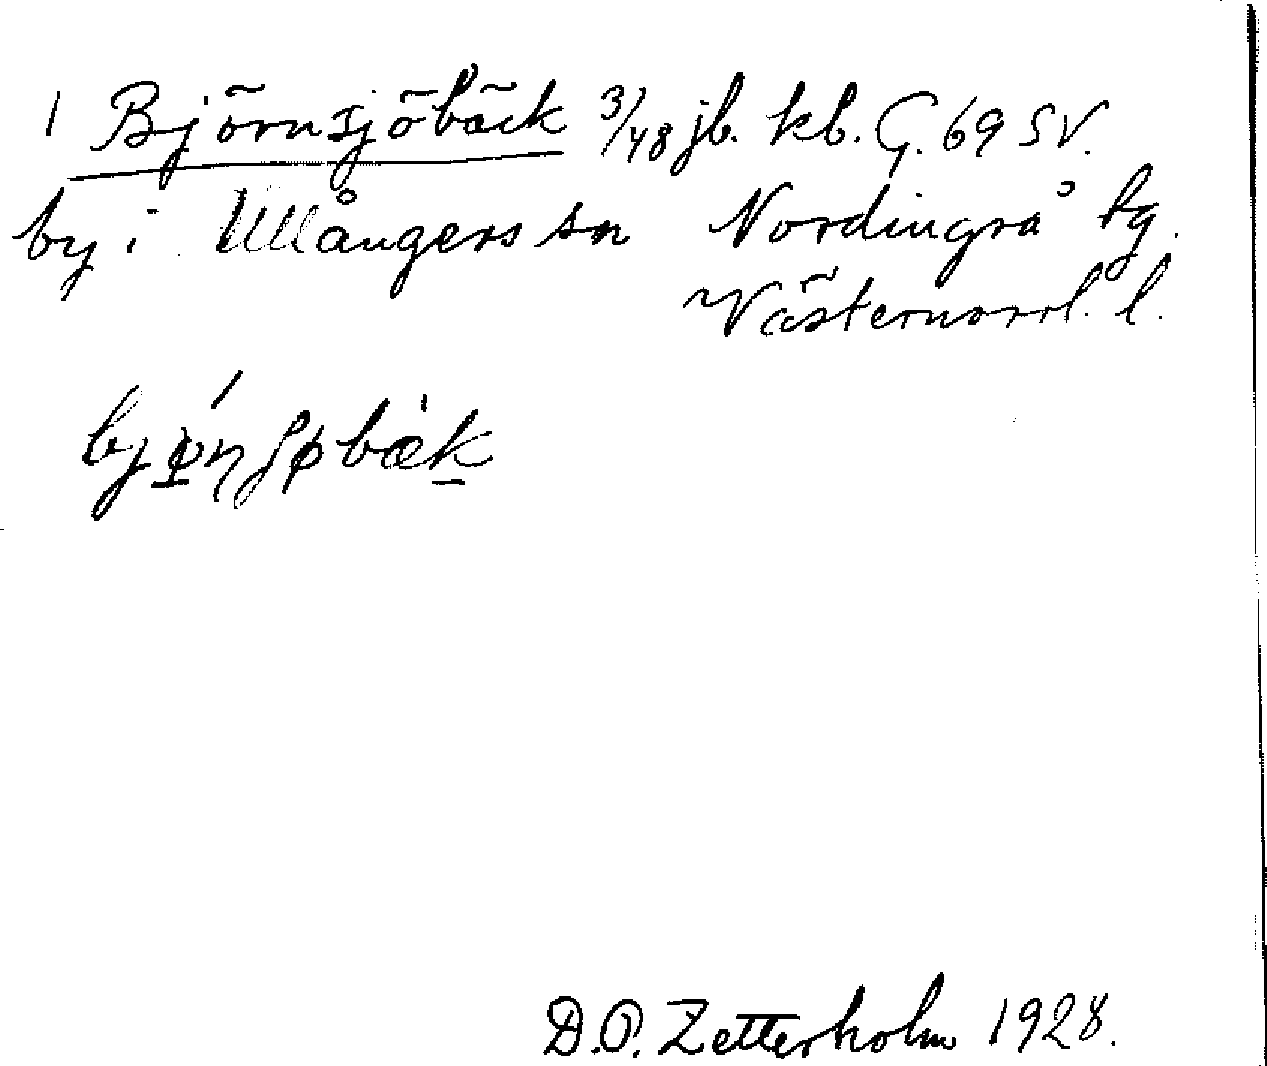 1 Björnsjöbäck 3/48 jb. kb. G. 69 SV.
by i Ullångers sn Nordingrå tg.
Västernorrl. l.
bjǿ̲ŋʃøbæ̀k̲
D.O. Zetterholm 1928.